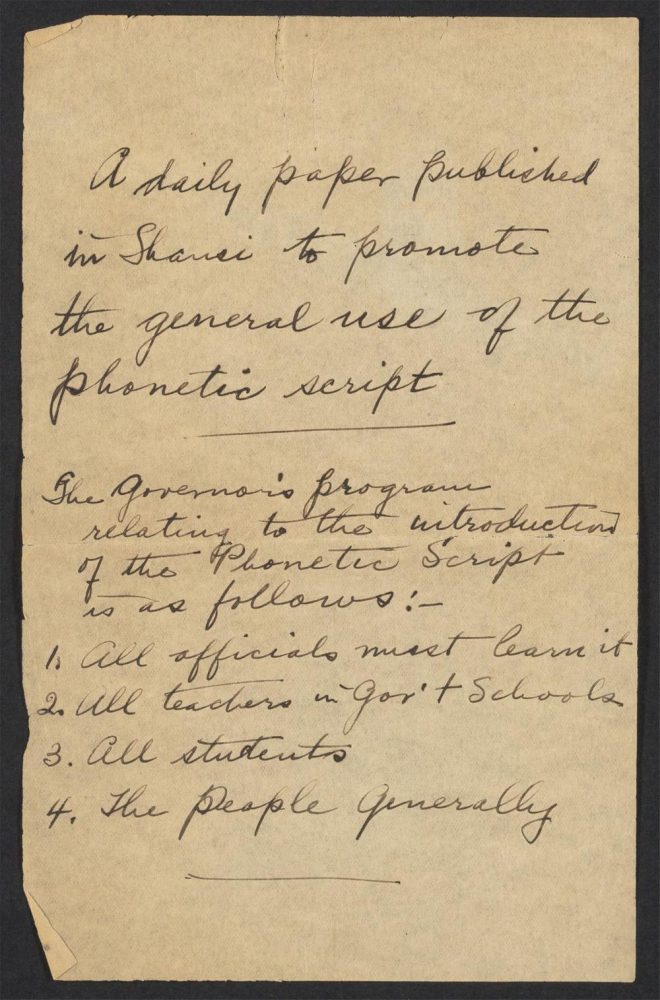 A daily paper published
in Shansi to promote
the general use of the
phonetic script
The Governor's program
relating to the introduction
of the Phonetic Script
is as follows:-
1. All officials must learn it
2. All teachers in Gov't Schools
3. All students
4. The People Generally